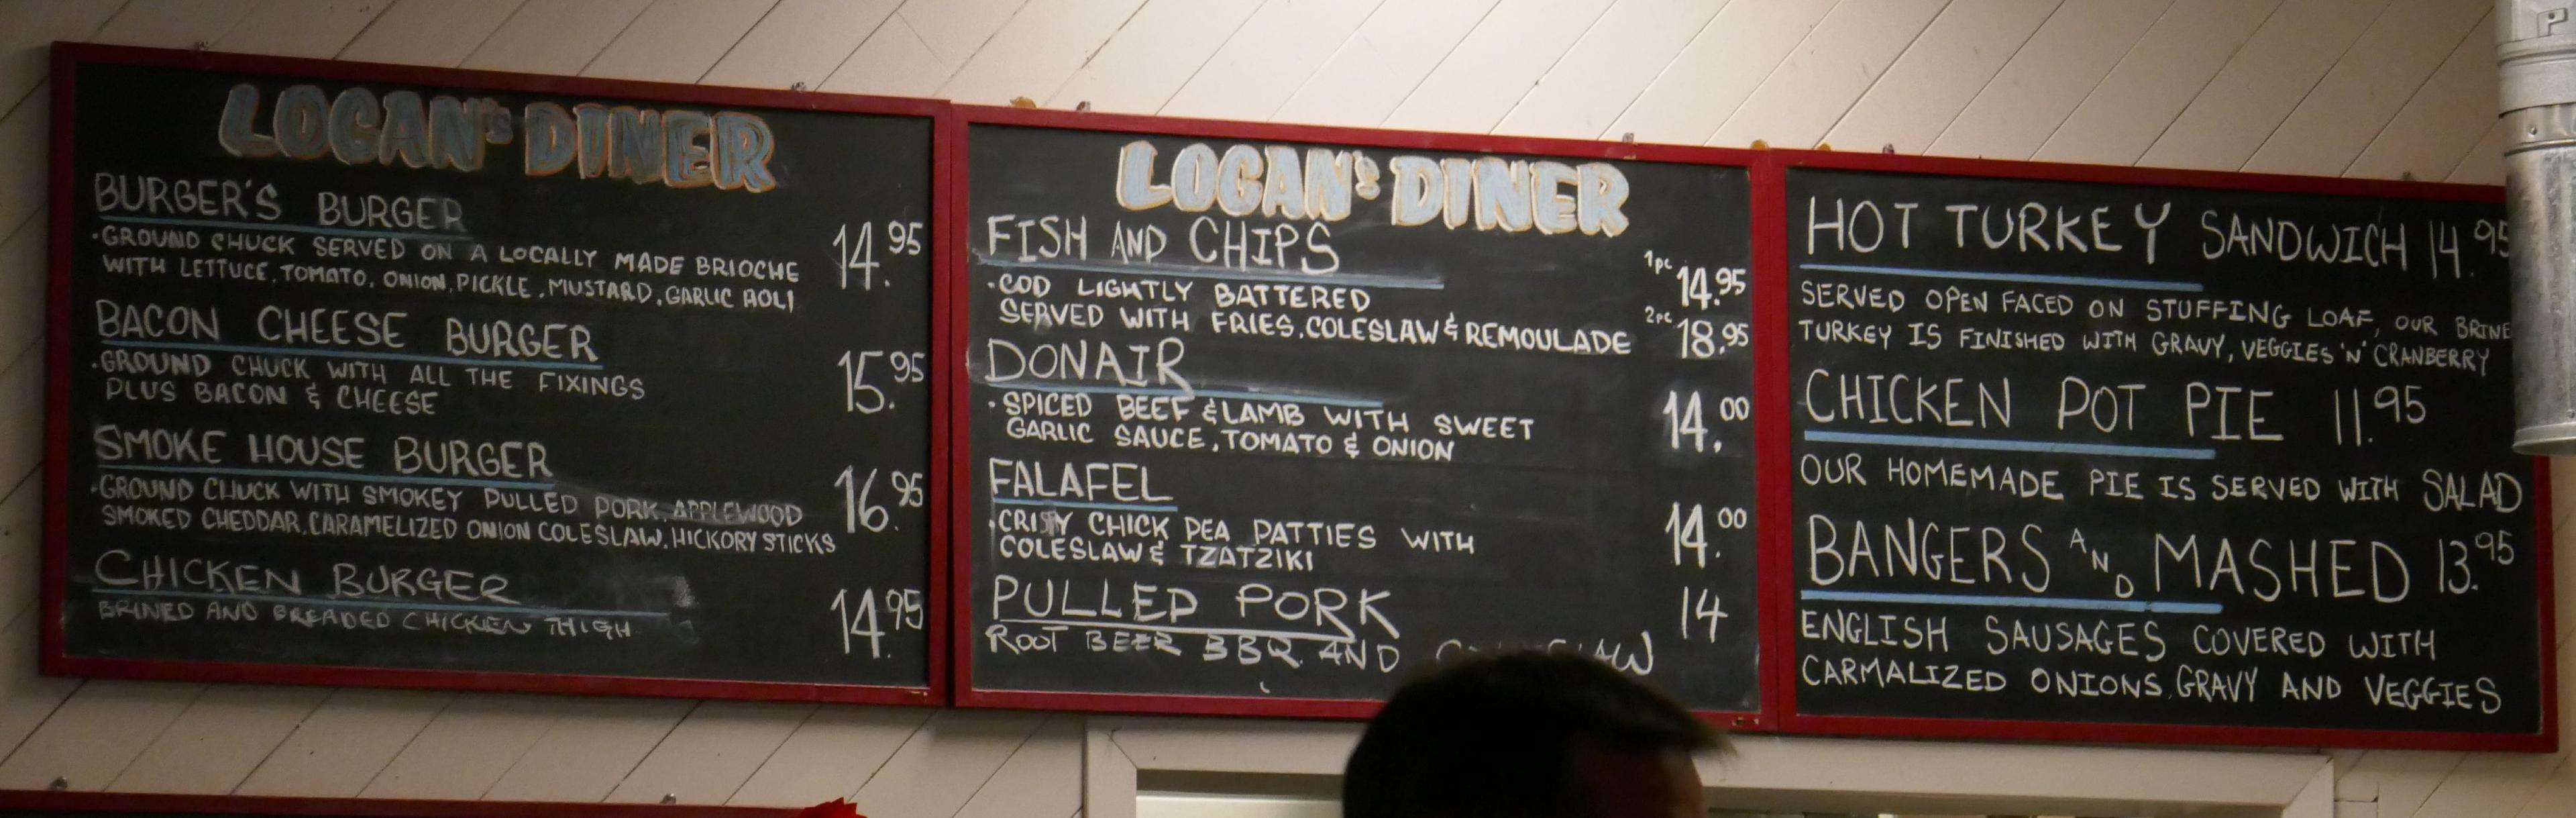 LOGAN'S DINER
BURGER'S BURGER
•GROUND CHUCK SERVED ON A LOCALLY MADE BRIOCHE 14.95
WITH LETTUCE, TOMATO, ONION, PICKLE, MUSTARD, GARLIC AOLI
BACON CHEESE BURGER
•GROUND CHUCK WITH ALL THE FIXINGS 15.95
PLUS BACON & CHEESE
SMOKE HOUSE BURGER
•GROUND CHUCK WITH SMOKEY PULLED PORK, APPLEWOOD 16.95
SMOKED CHEDDAR, CARAMELIZED ONION COLESLAW, HICKORY STICKS
CHICKEN BURGER
BRINED AND BREADED CHICKEN THIGH 14.95
LOGAN'S DINER
FISH AND CHIPS
•COD LIGHTLY BATTERED 1pc 14.95
SERVED WITH FRIES, COLESLAW & REMOULADE 2pc 18.95
DONAIR
•SPICED BEEF & LAMB WITH SWEET 14.00
GARLIC SAUCE, TOMATO & ONION
FALAFEL
•CRISPY CHICK PEA PATTIES WITH 14.00
COLESLAW & TZATZIKI
PULLED PORK 14
ROOT BEER BBQ AND COLESLAW
HOT TURKEY SANDWICH 14.95
SERVED OPEN FACED ON STUFFING LOAF, OUR BRINE
TURKEY IS FINISHED WITH GRAVY, VEGGIES 'N' CRANBERRY
CHICKEN POT PIE 11.95
OUR HOMEMADE PIE IS SERVED WITH SALAD
BANGERS AND MASHED 13.95
ENGLISH SAUSAGES COVERED WITH
CARMALIZED ONIONS, GRAVY AND VEGGIES